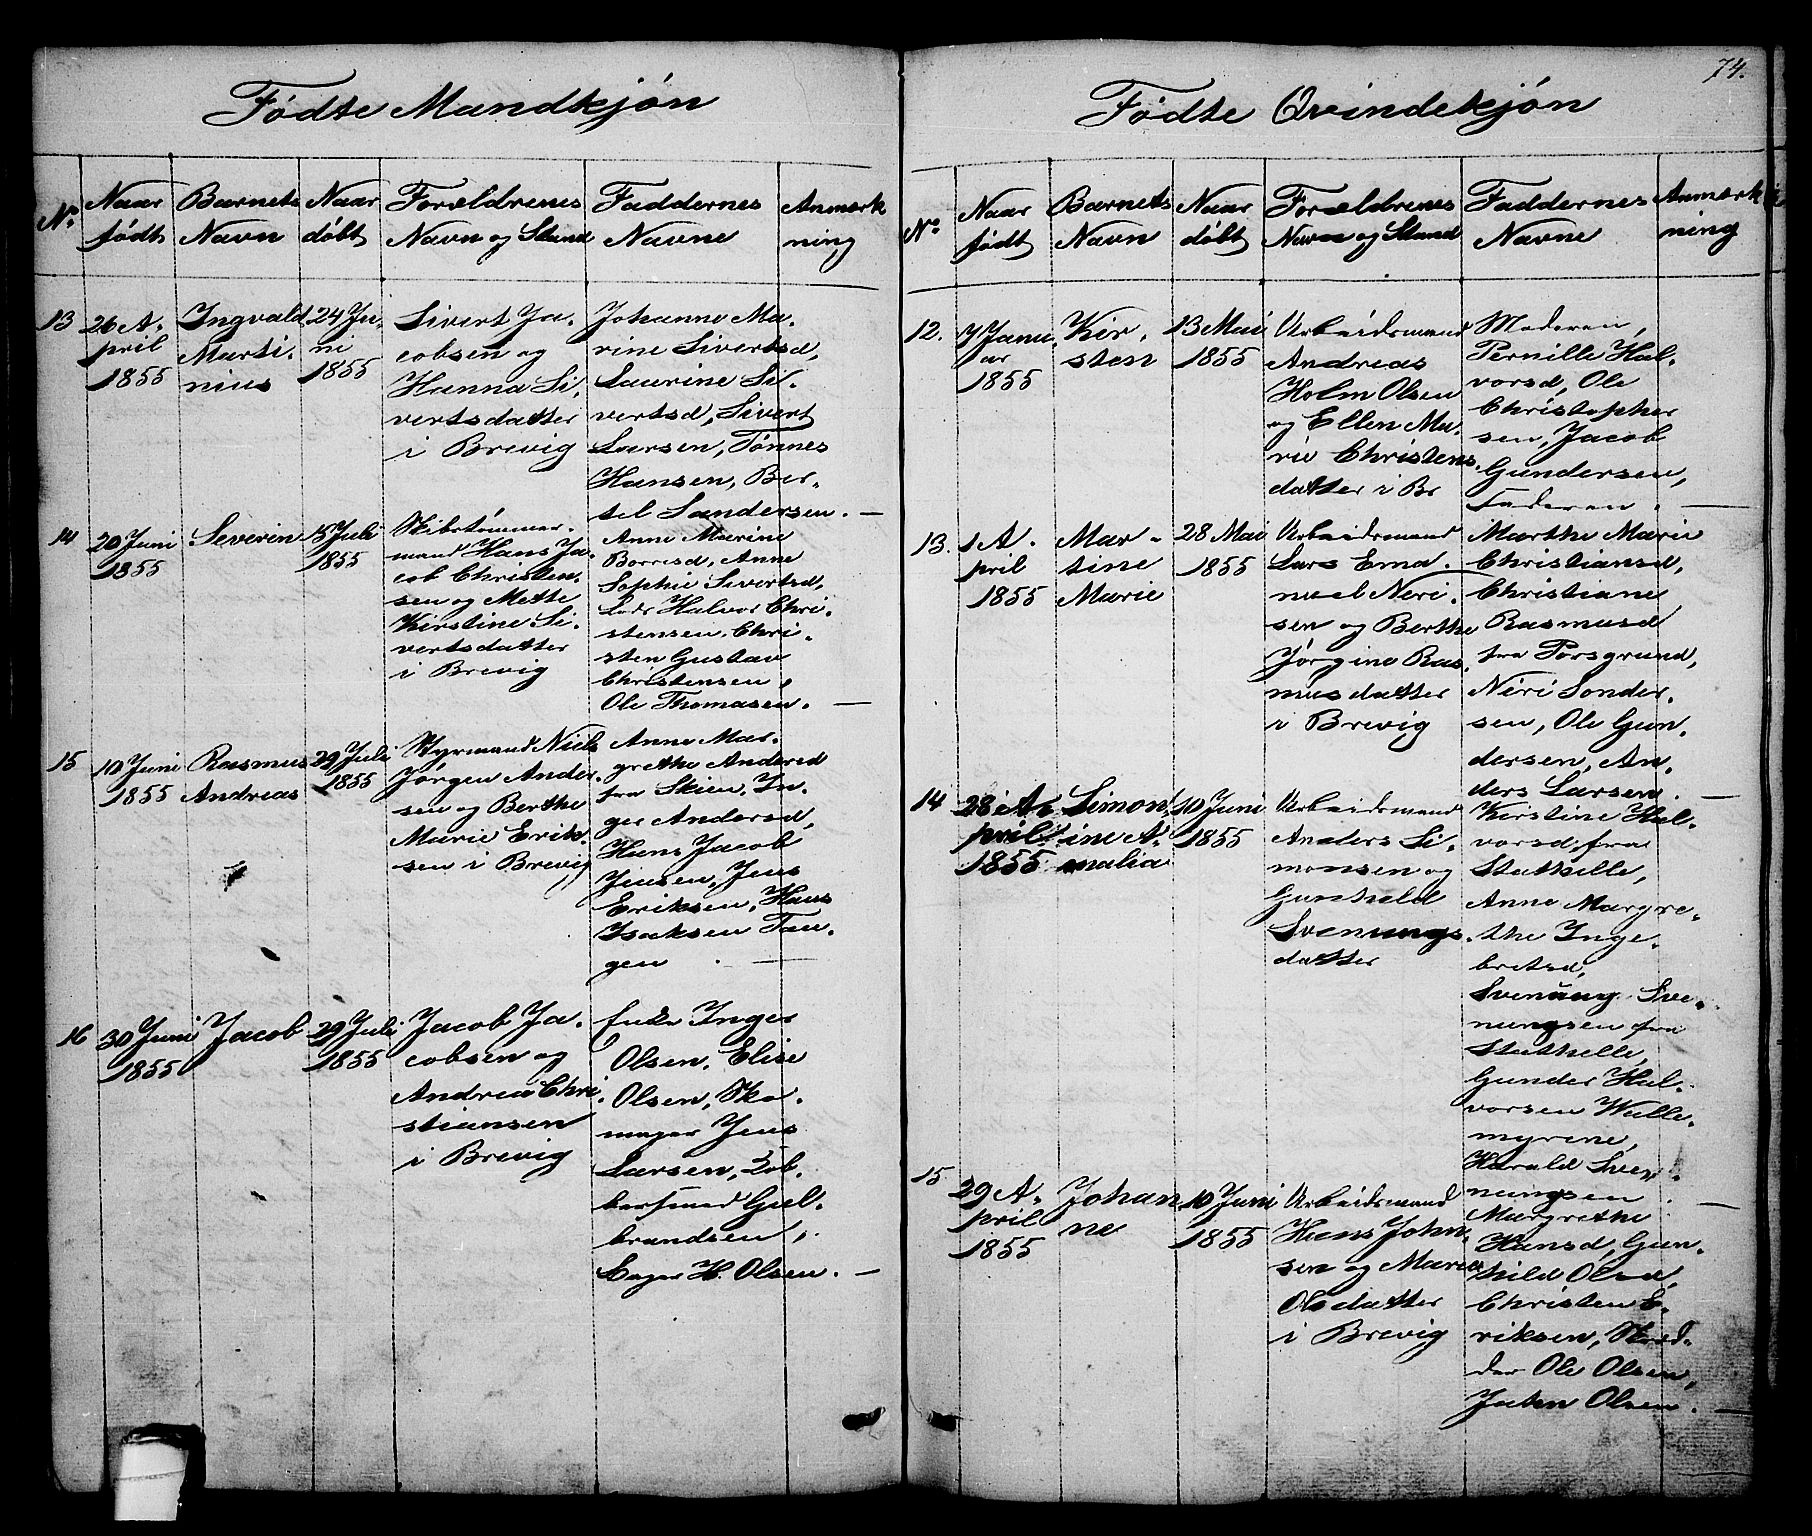 Fødte Mandkjøn
No
Naar født
Barnets Navn
Naar døbt
Forældrenes Navn og Stand
Faddernes Navne
Anmærkning
13
26 A-
pril
1855
Ingvald
Marti-
nius
24 Ju-
ni
1855
Sivert Ja-
cobsen og
Hanna Si-
vertsdatter
i Brevig
Johanne Ma-
rine Sivertsd,
Laurine Si-
vertsd, Sivert
Larsen, Tønnes
Hansen, Ber-
tel Sandersen. —
14
20 Juni
1855
Severin
15 Juli
1855
Skibstømmer-
mand Hans Ja-
cob Christen-
sen og Mette
Kirstine Si-
vertsdatter
i Brevig
Anne Marine
Borresd, Anne
Sophie Sivertsd,
Lods Halvor Chri-
stensen, Chri-
sten Gustav
Christensen,
Ole Thomasen. —
15
10 Juni
1855
Rasmus
Andreas
29 Juli
1855
Styrmand Niels
Jørgen Ander-
sen og Berthe
Marie Erik-
sen i Brevig
Anne Mar-
grethe Andersd
fra Skien, In-
ger Andersd,
Hans Jacob
Jensen, Jens
Eriksen, Hans
Isaksen Tan-
gen . —
16
30 Juni
1855
Jacob
29 Juli
1855
Jacob Ja-
cobsen og
Andrea Chri-
stiansen
i Brevig
Enke Inger
Olsen, Elise
Olsen, Sko-
mager Jens
Larsen,
Gul-
brandsen,
H. Olsen. —
74.
Fødte Qvindekjøn
No
Naar født
Barnets Navn
Naar døbt
Forældrenes Navn og Stand
Faddernes Navne
Anmærkning
12.
7 Janu-
ar
1855
Kir-
sten
13 Mai
1855
Arbeidsmand
Andreas
Holm Olsen
og Ellen Ma-
rie Christens-
datter i Br
Moderen,
Pernille Hal-
vorsd, Ole
Christopher
sen, Jacob
Gundersen,
Faderen. —
13.
1 A-
pril
1855
Mar-
tine
Marie
28 Mai
1855
Arbeidsmand
Lars Ema-
nuel Neri-
sen og Berthe
Jørgine Ras-
musdatter
i Brevig
Marthe Marie
Christiansd,
Christiane
Rasmusd
fra Porsgrund,
Neri Sonder-
sen, Ole Gun-
dersen, An-
ders Larsen. —
14
28 A-
pril
1855
Simon-
ine A-
malia
10 Juni
1855
Arbeidsmand
Anders Si-
monsen og
Gunhild
Svenungs-
datter
Kirstine Hal-
vorsd, fra
Stathelle,
Anne Margre-
the Inge-
bretsd,
Svenung Sve-
nungsen fra
Stathelle,
Gunder Hal-
vorsen Walle-
myrene,
Harald Sven-
nungsen . —
15
29 A-
pril
1855
Johan-
ne
10 Juni
1855
Arbeidsmand
Hans John-
sen og Maren
Olsdatter
i Brevig
Margrethe
Hansd, Gun-
hild Olsd,
Christen E-
riksen, Skræd-
der Ole Olsen,
John Olsen. —